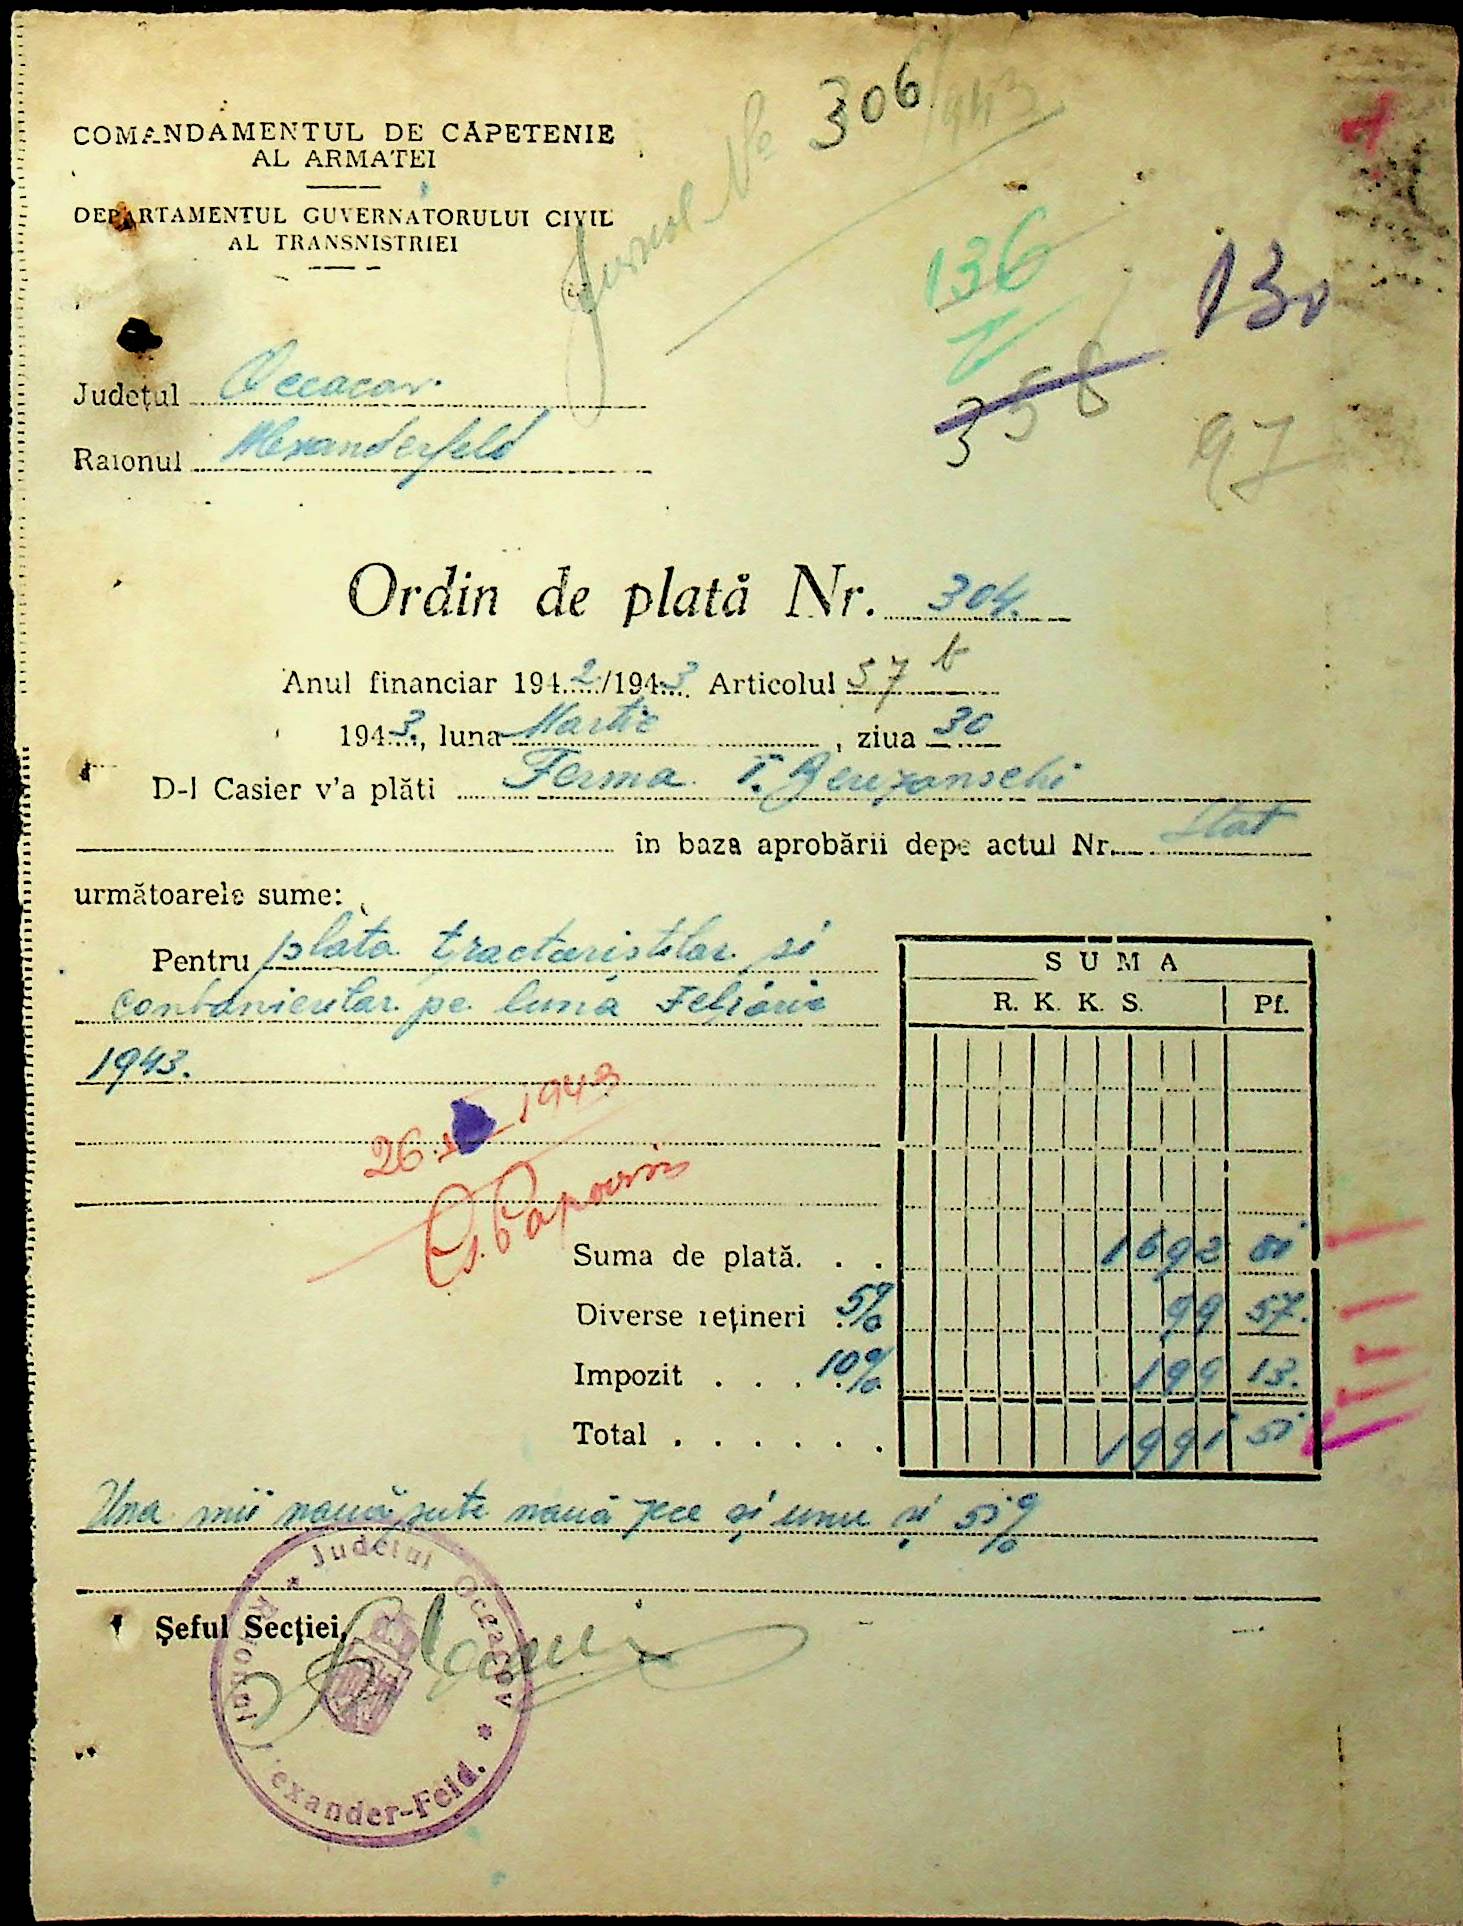 COMANDAMENTUL DE CĂPETENIE
AL ARMATEI
DEPARTAMENTUL GUVERNATORULUI CIVIL
AL TRANSNISTRIEI
Jurnal No 306/943
136
130
358
97
Județul Oceacov
Raionul Alexanderfeld
Ordin de plată Nr. 304.
Anul financiar 1942/1943 Articolul 57 b
1943, luna Martie, ziua 30
D-l Casier v'a plăti Ferma T. Berezanschi
în baza aprobării depe actul Nr. Stat
următoarele sume:
Pentru plata tractoristilor si
pe luna Febrarie
1943.
SUMA
R. K. K. S. Pf.
26 1943
Suma de plată. . . 1692 80
Diverse rețineri 5% 99 57.
Impozit . . . 10% 199 13.
Total . . . . . . 1991 50
Una mii nouă sute nouă zece și unu și 50%
Șeful Secției,
Județul Oceacov
Raionul Alexander-Feld.